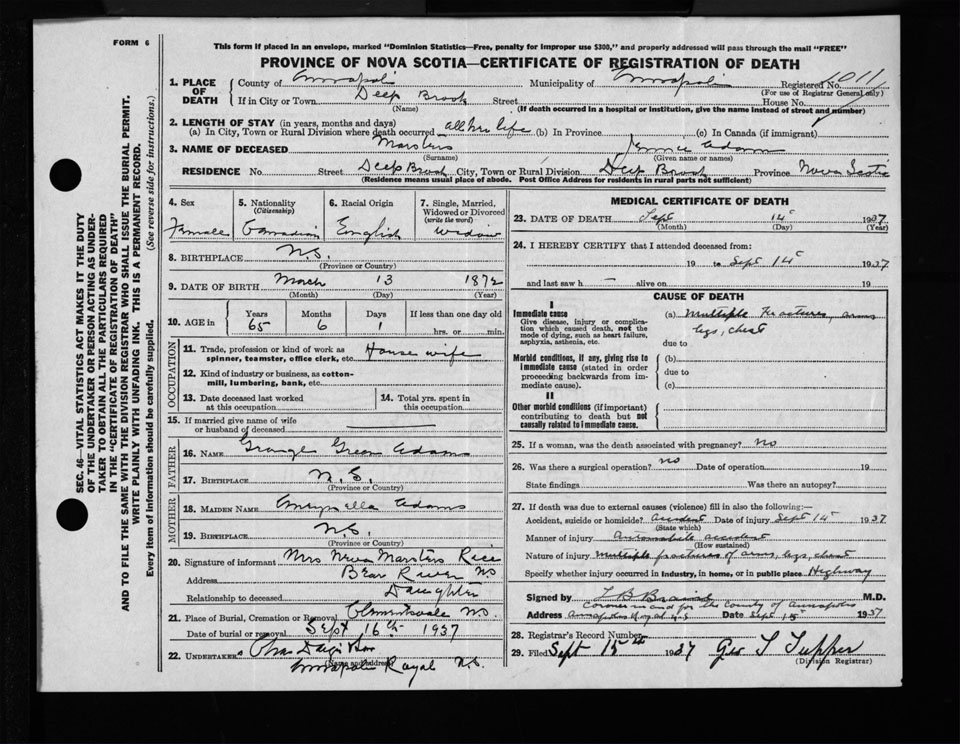 FORM 6
This form if placed in an envelope, marked "Dominion Statistics—Free, penalty for improper use $300," and properly addressed will pass through the mail "FREE"
PROVINCE OF NOVA SCOTIA—CERTIFICATE OF REGISTRATION OF DEATH
1. PLACE OF DEATH County of Annapolis Municipality of Annapolis Registered No. 1011
(For use of Registrar General only)
If in City or Town Deep Brook Street House No.
(Name) (If death occurred in a hospital or institution, give the name instead of street and number)
2. LENGTH OF STAY (in years, months and days)
(a) In City, Town or Rural Division where death occurred all her life (b) In Province (c) In Canada (if immigrant)
3. NAME OF DECEASED Marsters Jennie Adams
(Surname) (Given name or names)
RESIDENCE No. Street Deep Brook City, Town or Rural Division Deep Brook Province Nova Scotia
(Residence means usual place of abode. Post Office Address for residents in rural parts not sufficient)
4. Sex 5. Nationality (Citizenship) 6. Racial Origin 7. Single, Married, Widowed or Divorced (write the word)
Female Canadian English widow
8. BIRTHPLACE N.S.
(Province or Country)
9. DATE OF BIRTH March 13 1872
(Month) (Day) (Year)
10. AGE in Years Months Days If less than one day old
65 6 1 hrs. or min.
OCCUPATION
11. Trade, profession or kind of work as spinner, teamster, office clerk, etc. House wife
12. Kind of industry or business, as cotton-mill, lumbering, bank, etc.
13. Date deceased last worked at this occupation
14. Total yrs. spent in this occupation
15. If married give name of wife or husband of deceased
FATHER
16. NAME Green Adams
17. BIRTHPLACE N.S.
(Province or Country)
MOTHER
18. MAIDEN NAME Adams
19. BIRTHPLACE N.S.
(Province or Country)
20. Signature of informant Mrs Marsters Rice
Address Bear River N.S.
Relationship to deceased Daughter
21. Place of Burial, Cremation or Removal Clementsvale N.S.
Date of burial or removal Sept 16th 1937
22. UNDERTAKER
(Name and address)
Annapolis Royal N.S.
MEDICAL CERTIFICATE OF DEATH
23. DATE OF DEATH Sept 14 1937
(Month) (Day) (Year)
24. I HEREBY CERTIFY that I attended deceased from:
19 to Sept 14 1937
and last saw h alive on 19
CAUSE OF DEATH
I
Immediate cause
Give disease, injury or complication which caused death, not the mode of dying, such as heart failure, asphyxia, asthenia, etc.
(a) Multiple Fractures, arms
legs, chest
due to
Morbid conditions, if any, giving rise to immediate cause (stated in order proceeding backwards from immediate cause).
(b)
due to
(c)
II
Other morbid conditions (if important) contributing to death but not causally related to immediate cause.
25. If a woman, was the death associated with pregnancy? no
26. Was there a surgical operation? no Date of operation 19
State findings Was there an autopsy?
27. If death was due to external causes (violence) fill in also the following:—
Accident, suicide or homicide? accident Date of injury Sept 14 1937
(State which)
Manner of injury Automobile accident
(How sustained)
Nature of injury multiple fractures of arms, legs, chest
Specify whether injury occurred in industry, in home, or in public place Highway
Signed by M.D.
Coroner in and for the County of Annapolis
Address Annapolis Royal N-S Date Sept 15 1937
28. Registrar's Record Number
29. Filed Sept 15th 1937 Geo T Tupper
(Division Registrar)
SEC. 46—VITAL STATISTICS ACT MAKES IT THE DUTY
OF THE UNDERTAKER OR PERSON ACTING AS UNDER-
TAKER TO OBTAIN ALL THE PARTICULARS REQUIRED
IN THE "CERTIFICATE OF REGISTRATION OF DEATH"
AND TO FILE THE SAME WITH THE DIVISION REGISTRAR WHO SHALL ISSUE THE BURIAL PERMIT.
WRITE PLAINLY WITH UNFADING INK. THIS IS A PERMANENT RECORD.
Every item of information should be carefully supplied. (See reverse side for instructions.)